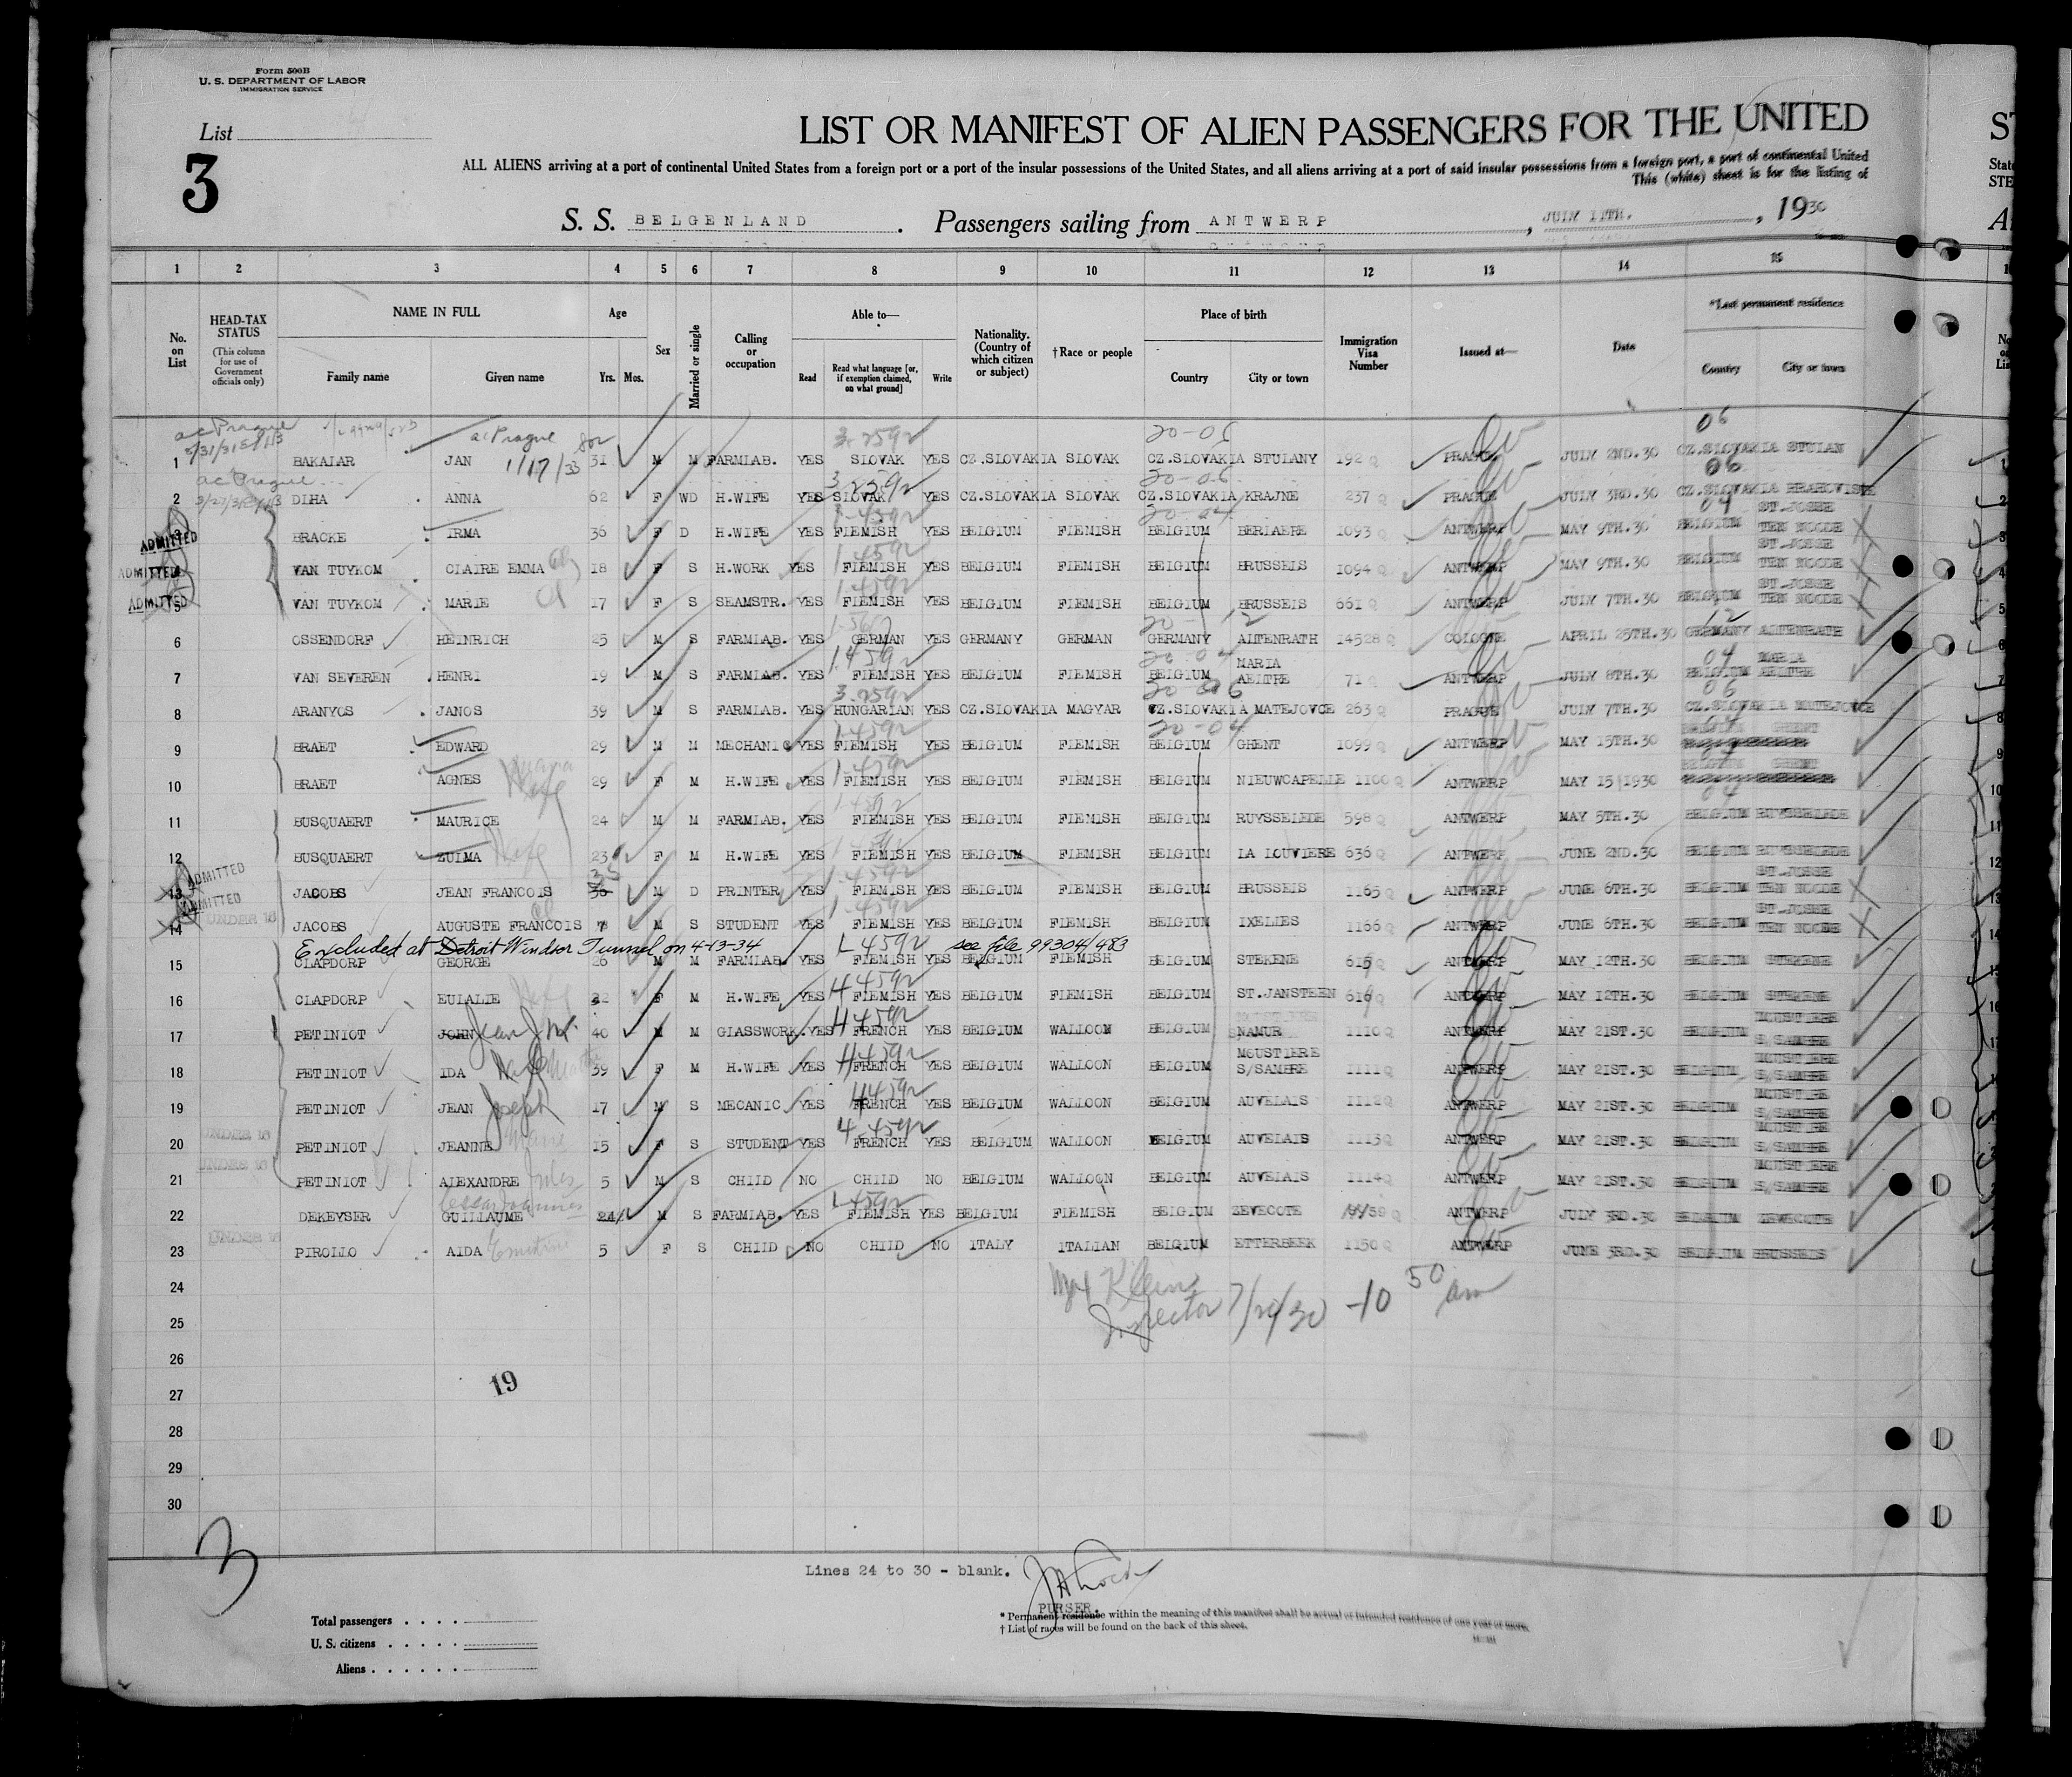 Form 500B
U. S. DEPARTMENT OF LABOR
IMMIGRATION SERVICE
List
3
LIST OR MANIFEST OF ALIEN PASSENGERS FOR THE UNITED
ALL ALIENS arriving at a port of continental United States from a foreign port or a port of the insular possessions of the United States, and all aliens arriving at a port of said insular possessions from a foreign port, a port of continental United
This (white) sheet is for the listing of
S. S. BELGENLAND . Passengers sailing from ANTWERP , JULY 11TH. , 1930
1 2 3 4 5 6 7 8 9 10 11 12 13 14 15
No. on List
HEAD-TAX STATUS (This column for use of Government officials only)
NAME IN FULL Family name Given name
Age Yrs. Mos.
Sex
Married or single
Calling or occupation
Able to— Read Read what language [or, if exemption claimed, on what ground] Write
Nationality. (Country of which citizen or subject)
†Race or people
Place of birth Country City or town
Immigration Visa Number
Issued at—
Date
*Last permanent residence Country City or town
ac Prague ac Prague 3-2592 20-06 06
5/31/31 1/17/33
1 BAKALAR JAN 31 M M FARMLAB. YES SLOVAK YES CZ.SLOVAKIA SLOVAK CZ.SLOVAKIA STULANY 192 Q PRAGUE JULY 2ND.30 CZ.SLOVAKIA STULAN
ac Prague 3-2592 20-06 06
2 DLHA ANNA 62 F WD H.WIFE YES SLOVAK YES CZ.SLOVAKIA SLOVAK CZ.SLOVAKIA KRAJNE 237 Q PRAGUE JULY 3RD.30 CZ.SLOVAKIA HRAHOVISTE
1-4592 20-04 04 ST.JOSSE
ADMITTED 3 BRACKE IRMA 36 F D H.WIFE YES FLEMISH YES BELGIUM FLEMISH BELGIUM BERLAERE 1093 Q ANTWERP MAY 9TH.30 BELGIUM TEN NOODE
1-4592 ST.JOSSE
ADMITTED 4 VAN TUYKOM CLAIRE EMMA 18 F S H.WORK YES FLEMISH YES BELGIUM FLEMISH BELGIUM BRUSSELS 1094 Q ANTWERP MAY 9TH.30 BELGIUM TEN NOODE
1-4592 ST.JOSSE
ADMITTED 5 VAN TUYKOM MARIE 17 F S SEAMSTR. YES FLEMISH YES BELGIUM FLEMISH BELGIUM BRUSSELS 661 Q ANTWERP JULY 7TH.30 BELGIUM TEN NOODE
20-12 12
6 OSSENDORF HEINRICH 25 M S FARMLAB. YES GERMAN YES GERMANY GERMAN GERMANY ALTENRATH 14528 Q COLOGNE APRIL 25TH.30 GERMANY ALTENRATH
1-4592 20-04 MARIA 04 MARIA
7 VAN SEVEREN HENRI 19 M S FARMLAB. YES FLEMISH YES BELGIUM FLEMISH BELGIUM AELTRE 71 Q ANTWERP JULY 8TH.30 BELGIUM AELTRE
3-2592 20-06 06
8 ARANYOS JANOS 39 M S FARMLAB. YES HUNGARIAN YES CZ.SLOVAKIA MAGYAR CZ.SLOVAKIA MATEJOVCE 263 Q PRAGUE JULY 7TH.30 CZ.SLOVAKIA MATEJOVCE
1-4592 20-04 04 BELGIUM GHENT
9 BRAET EDWARD 29 M M MECHANIC YES FLEMISH YES BELGIUM FLEMISH BELGIUM GHENT 1099 Q ANTWERP MAY 15TH.30
1-4592 BELGIUM GHENT
10 BRAET AGNES Wife 29 F M H.WIFE YES FLEMISH YES BELGIUM FLEMISH BELGIUM NIEUWCAPELLE 1100 Q ANTWERP MAY 15 1930
1-4592 04
11 BUSQUAERT MAURICE 24 M M FARMLAB. YES FLEMISH YES BELGIUM FLEMISH BELGIUM RUYSSELEDE 598 Q ANTWERP MAY 5TH.30 BELGIUM RUYSSELEDE
12 BUSQUAERT ZULMA Wife 23 F M H.WIFE YES FLEMISH YES BELGIUM FLEMISH BELGIUM LA LOUVIERE 636 Q ANTWERP JUNE 2ND.30 BELGIUM RUYSSELEDE
ADMITTED 35 1-4592 ST.JOSSE
13 JACOBS JEAN FRANCOIS 36 M D PRINTER YES FLEMISH YES BELGIUM FLEMISH BELGIUM BRUSSELS 1165 Q ANTWERP JUNE 6TH.30 BELGIUM TEN NOODE
ADMITTED UNDER 16 1-4592 ST.JOSSE
14 JACOBS AUGUSTE FRANCOIS 7 M S STUDENT YES FLEMISH YES BELGIUM FLEMISH BELGIUM IXELLES 1166 Q ANTWERP JUNE 6TH.30 BELGIUM TEN NOODE
Excluded at Detroit Windsor Tunnel on 4-13-34 1-4592 see file 99304/483
15 CLAPDORP GEORGE 26 M M FARMLAB. YES FLEMISH YES BELGIUM FLEMISH BELGIUM STEKENE 615 Q ANTWERP MAY 12TH.30 BELGIUM STEKENE
4-4592
16 CLAPDORP EULALIE Wife 22 F M H.WIFE YES FLEMISH YES BELGIUM FLEMISH BELGIUM ST.JANSTEEN 616 Q ANTWERP MAY 12TH.30 BELGIUM STEKENE
4-4592 MOUSTIERE
17 PETINIOT JOHN Jean 40 M M GLASSWORK. YES FRENCH YES BELGIUM WALLOON BELGIUM NAMUR 1110 Q ANTWERP MAY 21ST.30 BELGIUM S/SAMBRE
4-4592 MOUSTIERE MOUSTIERE
18 PETINIOT IDA Wife 39 F M H.WIFE YES FRENCH YES BELGIUM WALLOON BELGIUM S/SAMBRE 1111 Q ANTWERP MAY 21ST.30 BELGIUM S/SAMBRE
4-4592 MOUSTIERE
19 PETINIOT JEAN Joseph 17 M S MECANIC YES FRENCH YES BELGIUM WALLOON BELGIUM AUVELAIS 1112 Q ANTWERP MAY 21ST.30 BELGIUM S/SAMBRE
UNDER 16 4-4592 MOUSTIERE
20 PETINIOT JEANNE Marie 15 F S STUDENT YES FRENCH YES BELGIUM WALLOON BELGIUM AUVELAIS 1113 Q ANTWERP MAY 21ST.30 BELGIUM S/SAMBRE
UNDER 16 MOUSTIERE
21 PETINIOT ALEXANDRE Jules 5 M S CHILD NO CHILD NO BELGIUM WALLOON BELGIUM AUVELAIS 1114 Q ANTWERP MAY 21ST.30 BELGIUM S/SAMBRE
1-4592
22 DEKEYSER GUILLAUME 24 M S FARMLAB. YES FLEMISH YES BELGIUM FLEMISH BELGIUM ZEVECOTE 59 Q ANTWERP JULY 3RD.30 BELGIUM ZEVECOTE
UNDER 16
23 PIROLLO AIDA 5 F S CHILD NO CHILD NO ITALY ITALIAN BELGIUM ETTERBEEK 1150 Q ANTWERP JUNE 3RD.30 BELGIUM BRUSSELS
24 Klein 50
25 Inspector 7/20/30 -10 am
26
27 19
28
29
30
3
Lines 24 to 30 - blank.
PURSER.
Total passengers
U. S. citizens
Aliens
* Permanent residence within the meaning of this manifest shall be actual or intended residence of one year or more.
† List of races will be found on the back of this sheet.